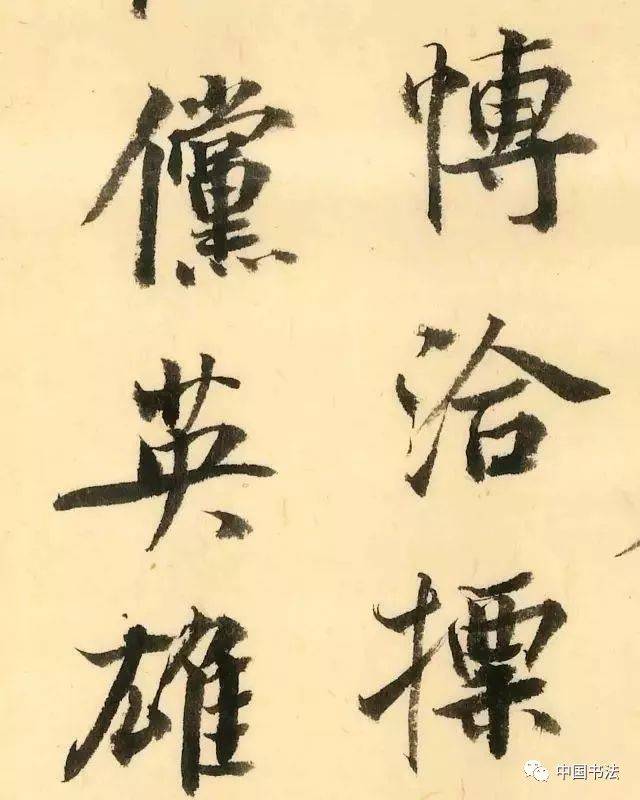 博洽摽
儻英雄
中国书法